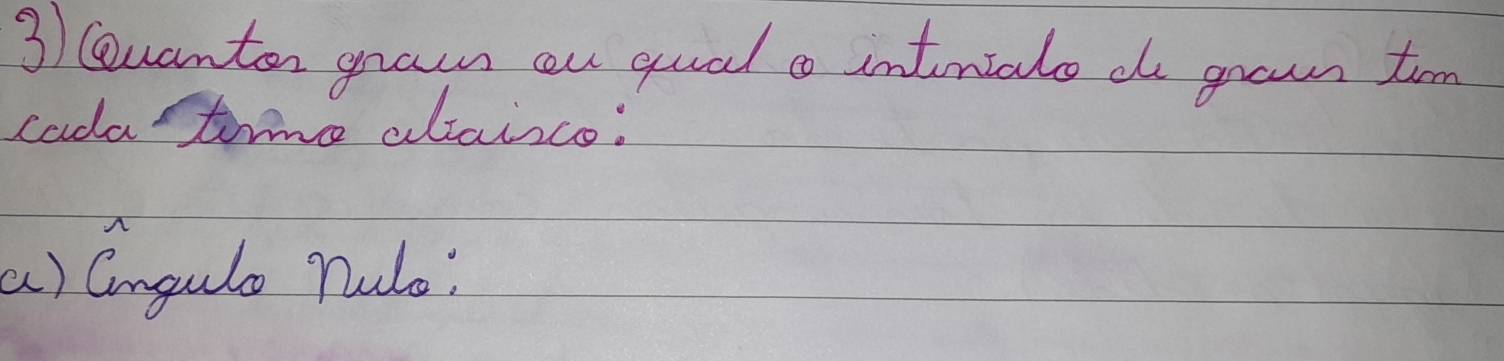 3) Quantos graus ou qual o intervalo de graus tem
cada termo abaixo:
a) Ângulo Nulo: